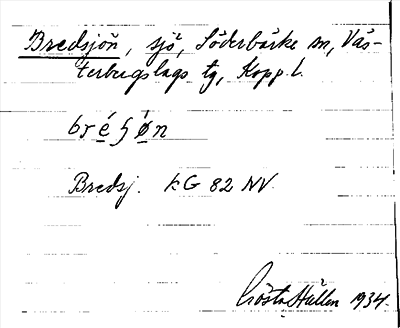 Bredsjön, sjö, Söderbärke sn, Väs-
terbergslags tg, Kopp. l.
Bredsj. KG 82 NV.
Gösta Hallén 1934.